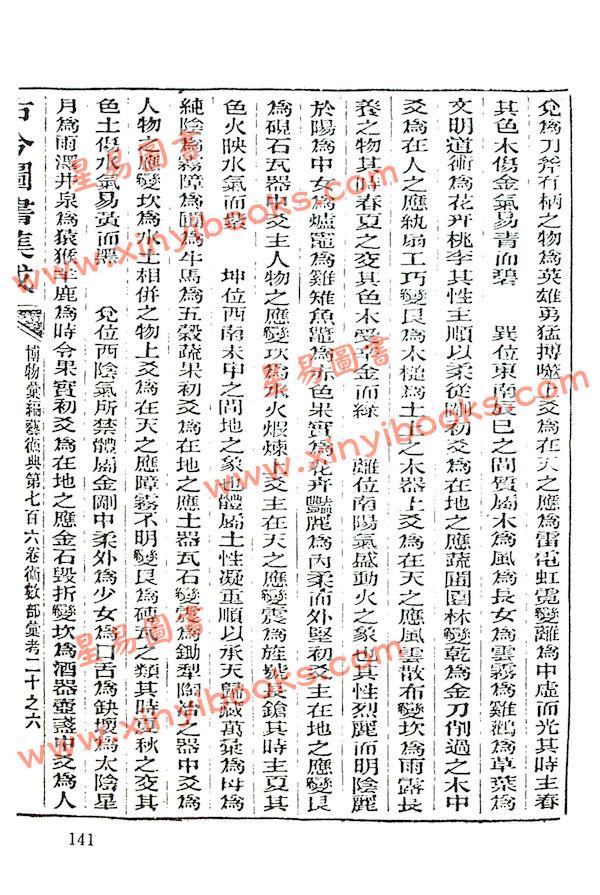 兌為刀斧有柄之物為英雄勇猛搏噬上爻為在天之應為雷電虹霓變離為中虛而光其時主春
其色木傷金氣易青而碧　巽位東南辰巳之間質屬木為風為長女為雲霧為雞鵝為草葉為
文明道術為花卉桃李其性主順以柔從剛初爻為在地之應蔬圃園林變乾為金刀削過之木中
爻為在人之應紈扇工巧變艮為木槌為土上之木器上爻為在天之應風雲散布變坎為雨露長
養之物其時春夏之交其色木受制金而綠　離位南陽氣盛動火之象也其性烈麗而明陰麗
於陽為中女為爐竈為雞雉魚鼈為赤色果實為花卉豔麗為內柔而外堅初爻主在地之應變艮
為硯石瓦器中爻主人物之應變為水火煅煉上爻主在天之應變震為旌旗長鎗其時主夏其
色火映水氣而紫　坤位西南未申之間地之象也體屬土性凝重順以承天歸藏萬彙為母為
純陰為霧障為圃為牛馬為五穀蔬果初爻為在地之應土器瓦石變震為鋤犁陶冶之器中爻為
人物之應變坎為水土相併之物上爻為在天之應障霧不明變艮為磚瓦之類其時夏秋之交其
色土傷水氣易黃而黑　兌位西陰氣所禁體屬金剛中柔外為少女為口舌為缺壞為太陰星
月為雨澤井泉為猿猴羊鹿為時令果實初爻為在地之應金石毀折變坎為酒器壺盞中爻為人
古今圖書集成
博物彙編藝術典第七百六卷術數部彙考二十之六
141
星易圖書
www.xinyibooks.com
星易圖書
www.xinyibooks.com
星易圖書
www.xinyibooks.com